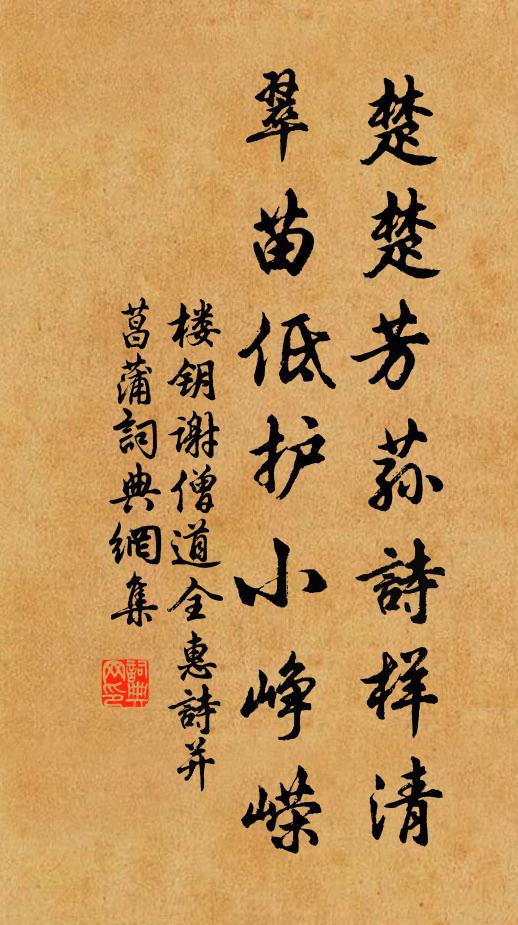 楚楚芳荪詩样清
翠苗低护小峥嵘
楼钥谢僧道全惠詩并
菖蒲詞典網集
詞典网印